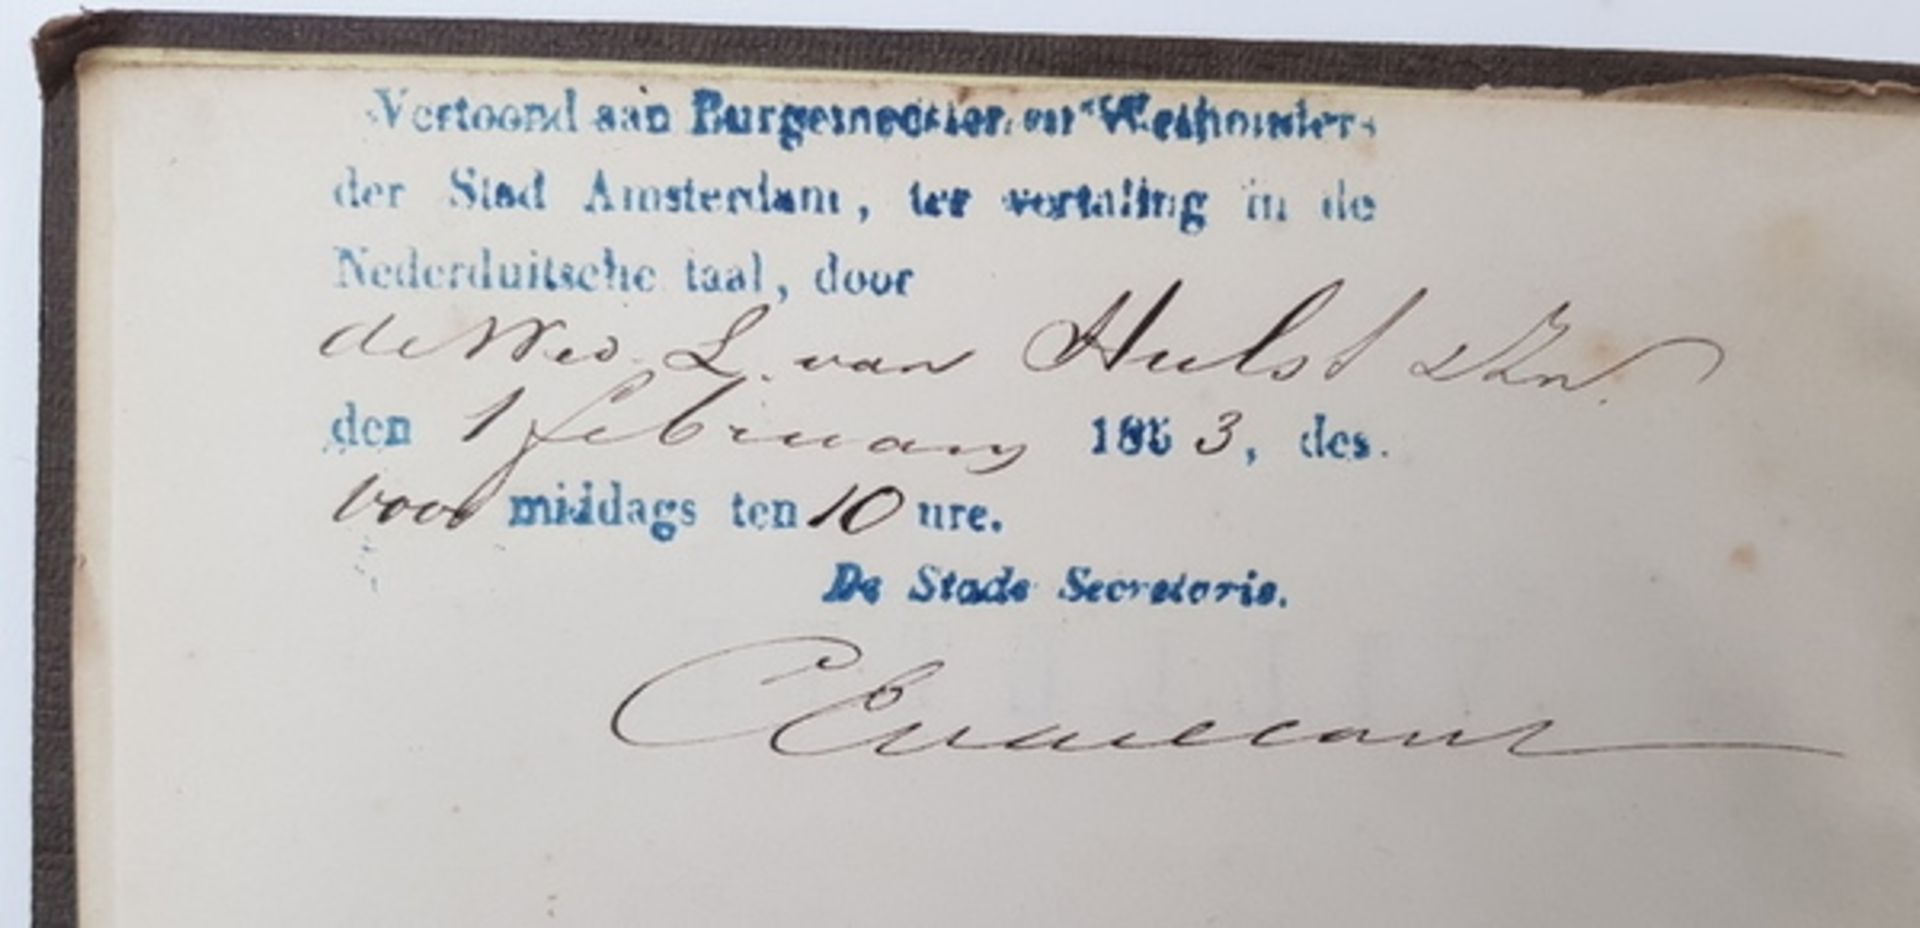 Vertoond aan Burgemeester en Wethouders
der Stad Amsterdam, ter vertaling in de
Nederduitsche taal, door
de Wed. L. van Hulst & Zn.
den 1 february 1853, des
voor middags ten 10 ure.
De Stads Secretaris.